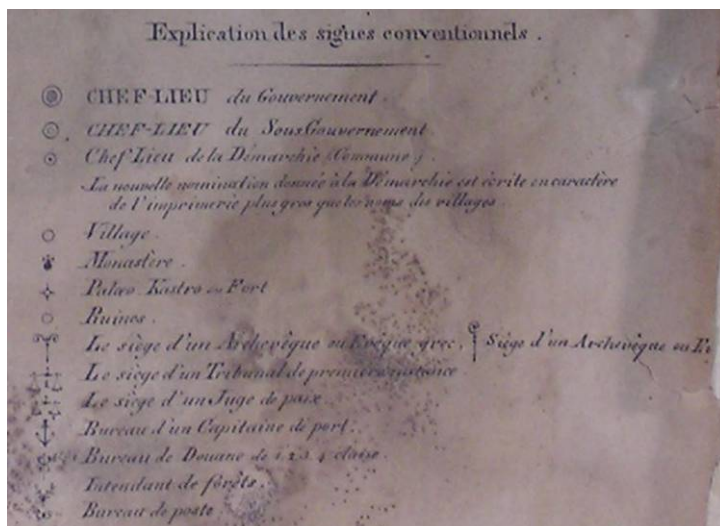 Explication des signes conventionnels.
CHEF-LIEU du Gouvernement.
CHEF-LIEU du SousGouvernement
Chef Lieu de la Démarchie (Commune).
La nouvelle nomination donnée à la Démarchie est écrite en caractère
de l'imprimerie plus gros que les noms des villages.
Village.
Monastère.
Palæo Kastro ou Fort
Ruines.
Le siège d'un Archevêque ou Evêque grec. Siège d'un Archevêque ou
Le siège d'un Tribunal de première instance
Le siège d'un Juge de paix.
Bureau d'un Capitaine de port.
Bureau de Douane de 1. 2. 3. 4 classe.
Intendant de forêts.
Bureau de poste